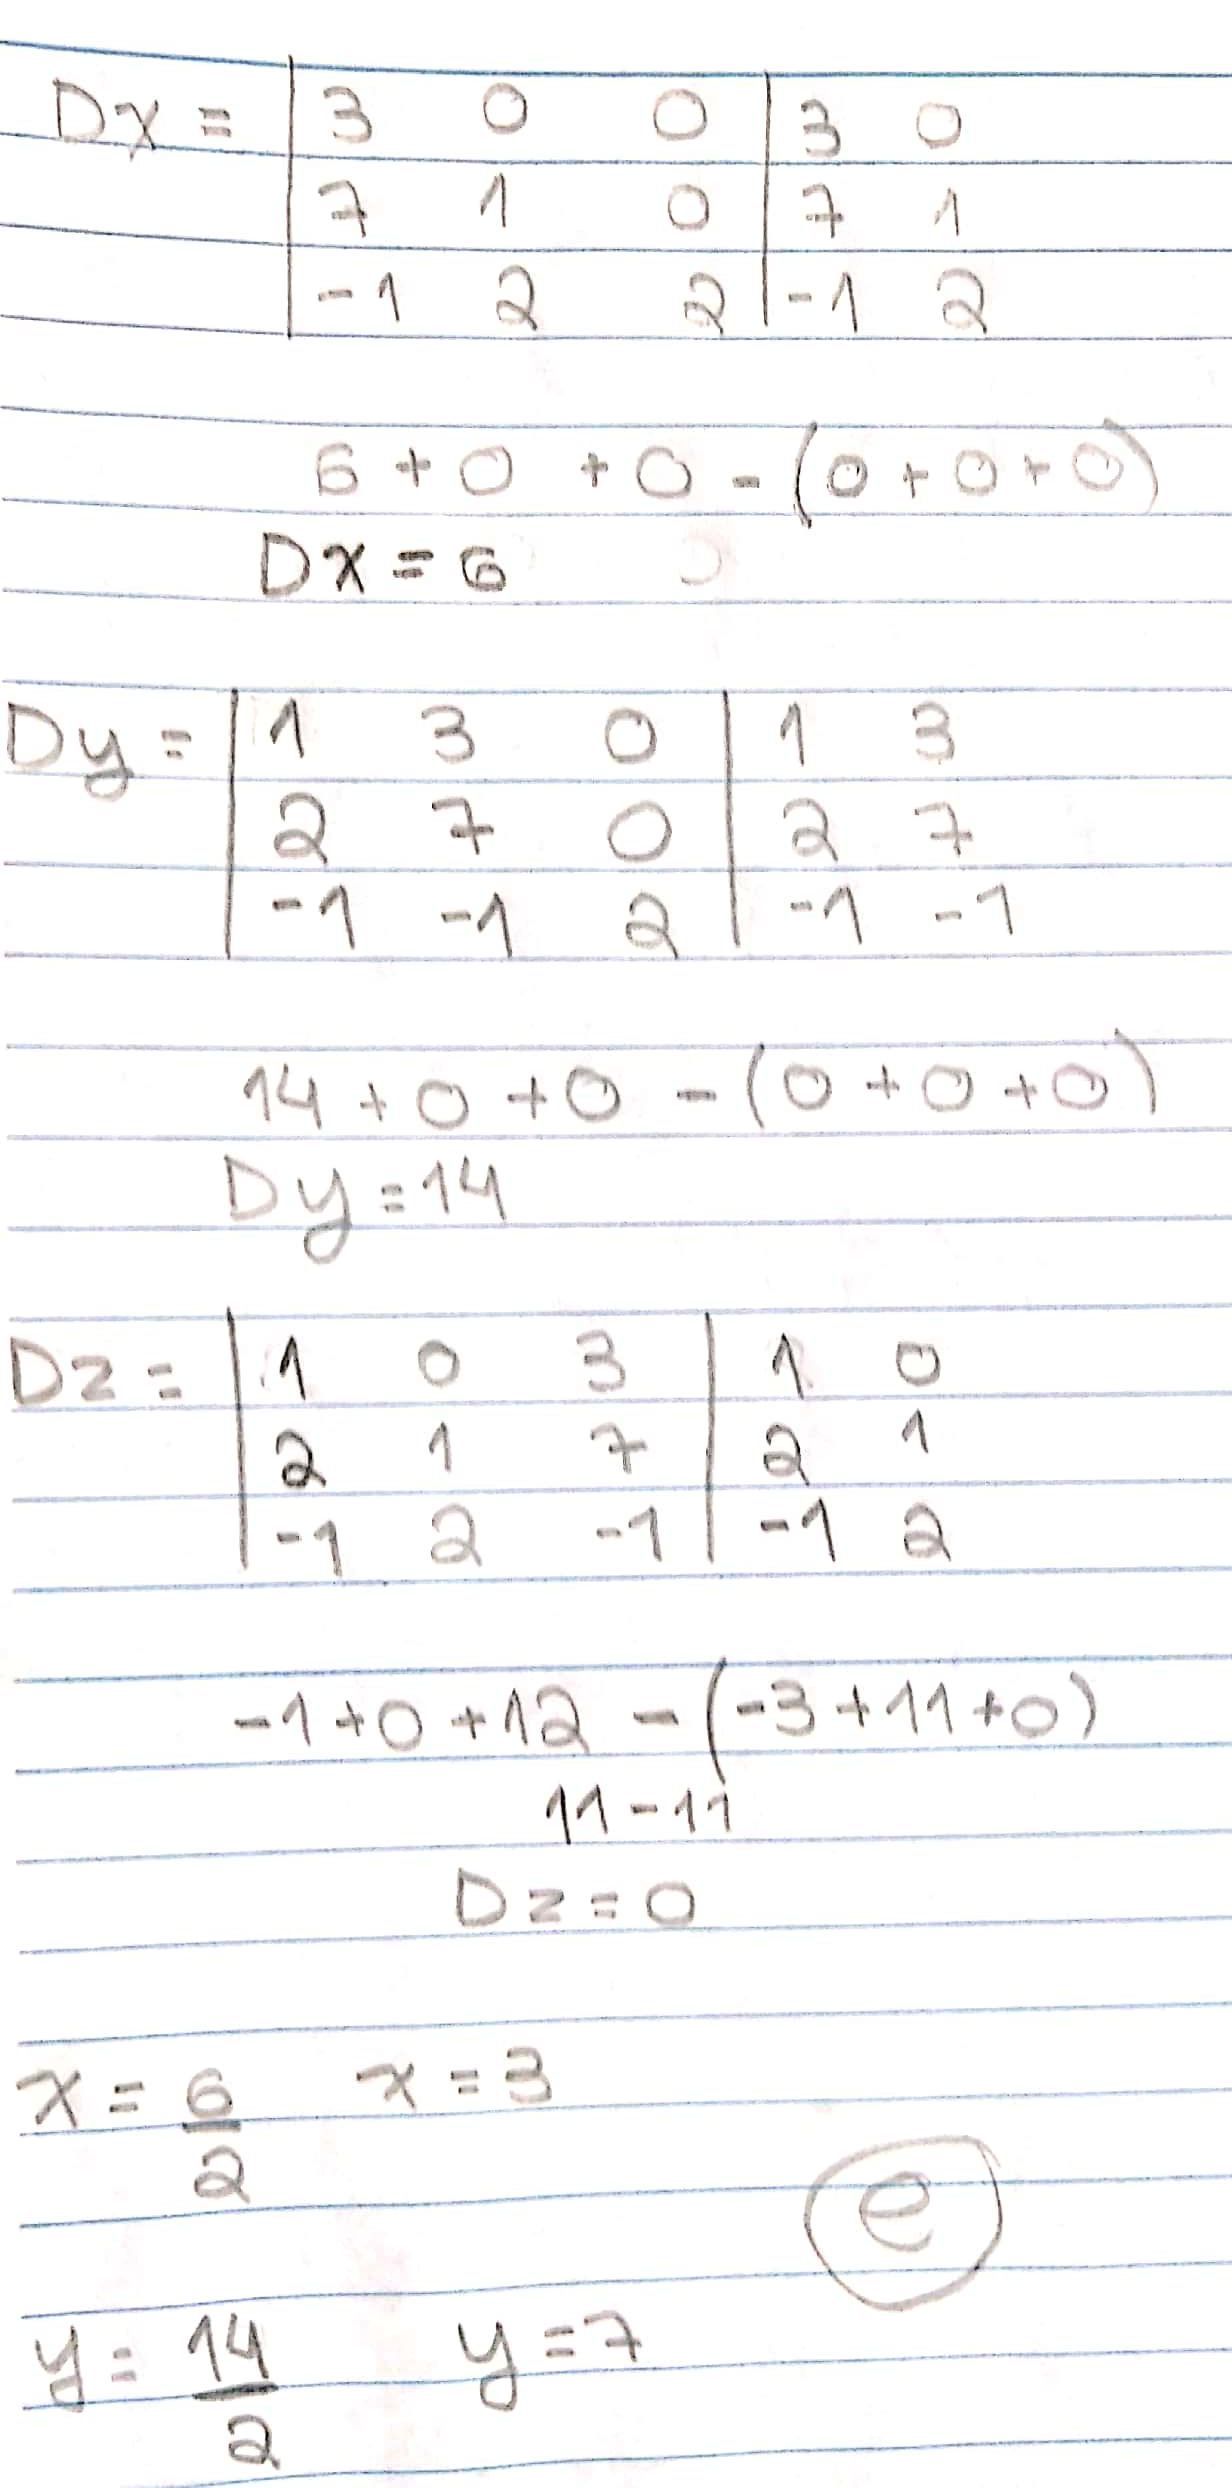 Dx = | 3 0 0 | 3 0
7 1 0 | 7 1
-1 2 2 | -1 2
6 + 0 + 0 - (0 + 0 + 0)
Dx = 6
Dy = | 1 3 0 | 1 3
2 7 0 | 2 7
-1 -1 2 | -1 -1
14 + 0 + 0 - (0 + 0 + 0)
Dy = 14
Dz = | 1 0 3 | 1 0
2 1 7 | 2 1
-1 2 -1 | -1 2
-1 + 0 + 12 - (-3 + 11 + 0)
11 - 11
Dz = 0
x = 6/2 x = 3
e
y = 14/2 y = 7